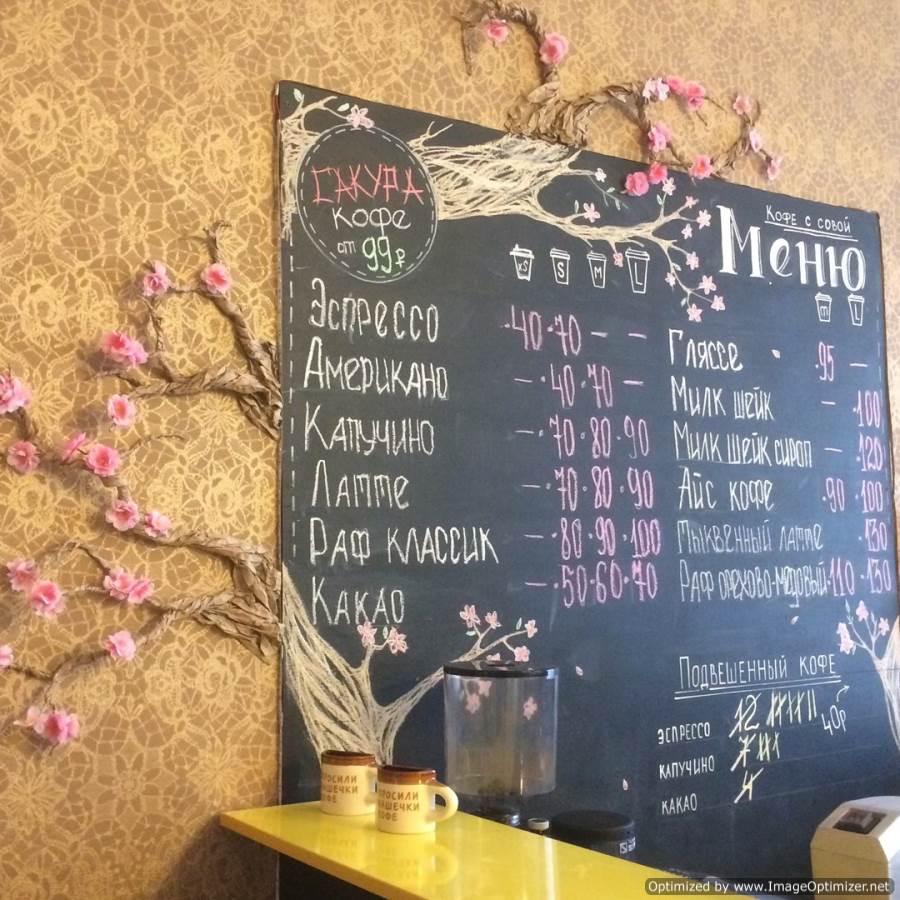 САКУРА
кофе
от 99₽
Кофе с совой
Меню
XS S M L
Эспрессо - 40 - 70 — —
Американо — - 40 - 70 —
Капучино — - 70 - 80 - 90
Латте — - 70 - 80 - 90
Раф классик — - 80 - 90 - 100
Какао — - 50 - 60 - 70
M L
Гляссе 95 —
Милк шейк — 100
Милк шейк сироп — 120
Айс кофе 90 100
Тыквенный латте 130
Раф орехово-медовый 110 130
Подвешенный кофе
эспрессо 12 40р
капучино
какао
Optimized by www.ImageOptimizer.net